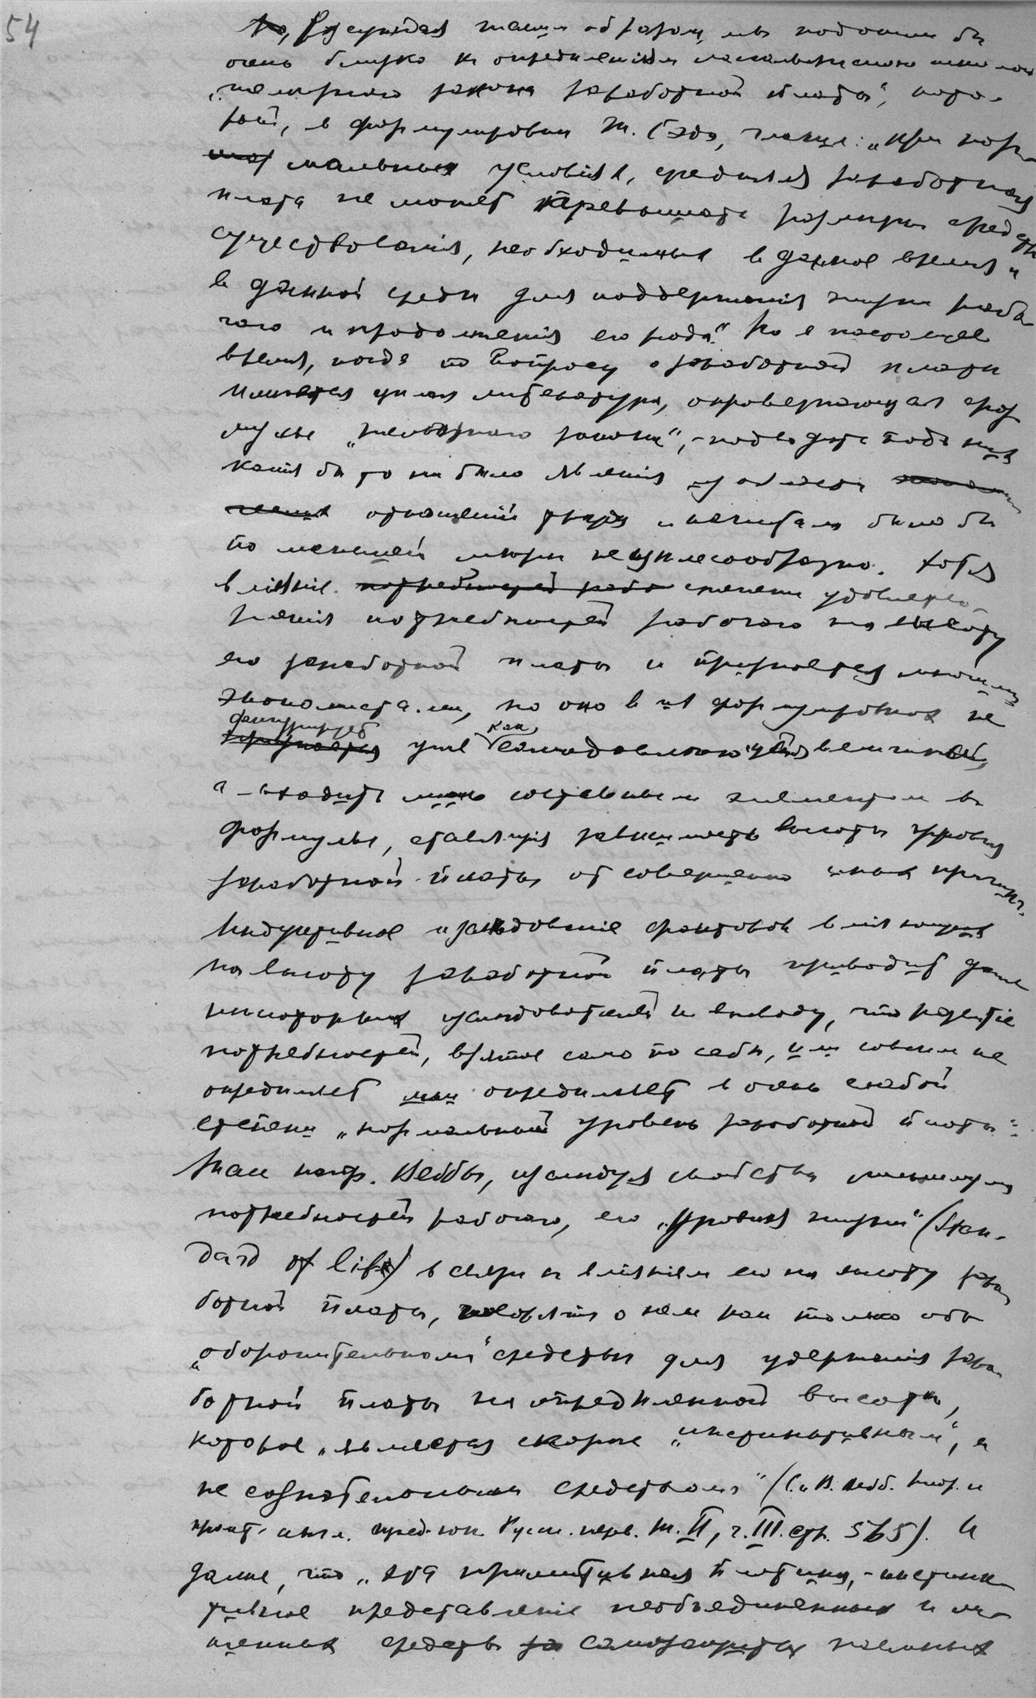 54
Разсуждая такимъ образомъ, мы подошли бы
очень близко къ определенiю
„желѣзнаго закона заработной платы“, кото-
рый, въ формулировкѣ Ж. Гэда, гласитъ: „при нор-
мальныхъ условiяхъ, средняя заработная
плата не можетъ превышать размѣры средствъ
существованiя, необходимыхъ въ данное время и
въ данной средѣ для поддержанiя жизни рабо-
чаго и продолженiя его рода“. Но въ настоящее
время, когда по вопросу о заработной платѣ
имѣется цѣлая литература, опровергающая
„желѣзнаго закона“, - подводить подъ нихъ
какiя бы то ни было явленiя изъ области
отношенiй труда и капитала было бы
по меньшей мѣрѣ нецѣлесообразно. Хотя
влiянiе степени удовлетво-
ренiя потребностей рабочаго на высоту
его заработной платы и признается многими
экономистами, но оно въ ихъ формулировкахъ не
фигурируетъ уже какъ самодовлѣющей величиной,
а - входитъ лишь составнымъ элементомъ въ
формулы, ставящiя зависимость высоты уровня
заработной платы отъ совершенно иныхъ причинъ.
Индуктивное изслѣдованiе факторовъ влiяющихъ
на высоту заработной платы приводитъ даже
нѣкоторыхъ изслѣдователей къ выводу, что развитiе
потребностей, взятое само по себѣ, или совсѣмъ не
опредѣляетъ или опредѣляетъ въ очень слабой
степени „нормальный уровень заработной платы“:
Такъ напр. Веббы, изслѣдуя свойства минимума
потребностей рабочаго, его „уровня жизни“ (Stan-
dard of life) въ связи съ влiянiемъ его на высоту зара-
ботной платы, говорятъ о немъ какъ только объ
„оборонительномъ“ средствѣ для удержанiя зара-
ботной платы на опредѣленной высотѣ,
которое „является скорѣе „инстинктивнымъ“, а
не сознательнымъ средствомъ“ (С. и Б. Вебб. Теор. и
практ. англ. тред-юн. Русск. перев. Т. II, ч. III. стр. 565). И
далѣе, что „эта примитивная плотина, - инстинк-
тивное представленiе необъединенныхъ и ли-
шенныхъ средствъ самозащиты наемныхъ